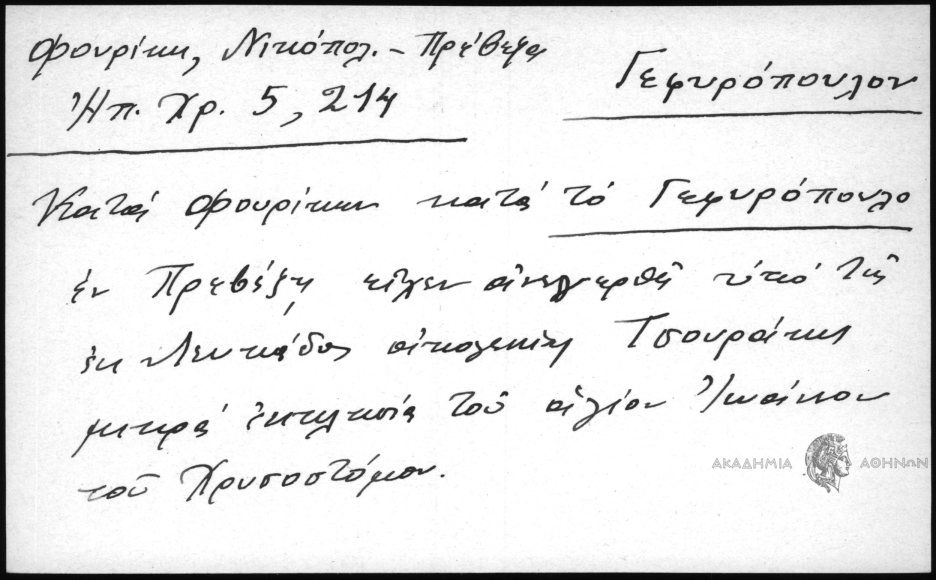 Φουρίκη, Νικόπολ. – Πρέβεζα
Ἠπ. Χρ. 5, 214
Γεφυρόπουλον
Κατά Φουρίκην κατά τό Γεφυρόπουλο
ἐν Πρεβέζῃ εἶχεν ἀνεγερθῆ ὑπό τῆς
ἐκ Λευκάδος οἰκογενείας Τσουράκη
μικρά ἐκκλησία τοῦ ἁγίου Ἰωάννου
τοῦ Χρυσοστόμου.
ΑΚΑΔΗΜΙΑ ΑΘΗΝΩΝ